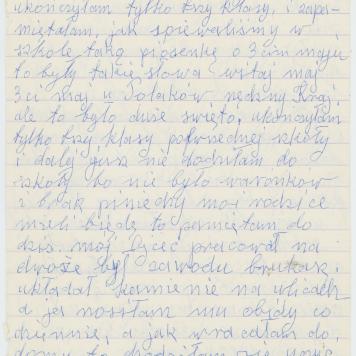 ukończyłam tylko trzy klasy, i zapo-
miętałam, jak śpiewaliśmy w
szkole taką piosenkę o 3cim maju
to były takie słowa witaj maj
3ci maj u Polaków Kraj
ale to było duże święto, ukończyłam
tylko trzy klasy powszednej szkoły
i dalej już nie chodziłam do
szkoły bo nie było warónków
i brak piniędzy moi rodzice
mieli biédę to pamiętam do
dziś. mój Ojciec pracował na
dworze był zawodu brukarz.
układał kamienie na ulicach
a ja nosiłam mu obiady co
dziennie, a jak wracałam do
domu to chodziłam się uczyć